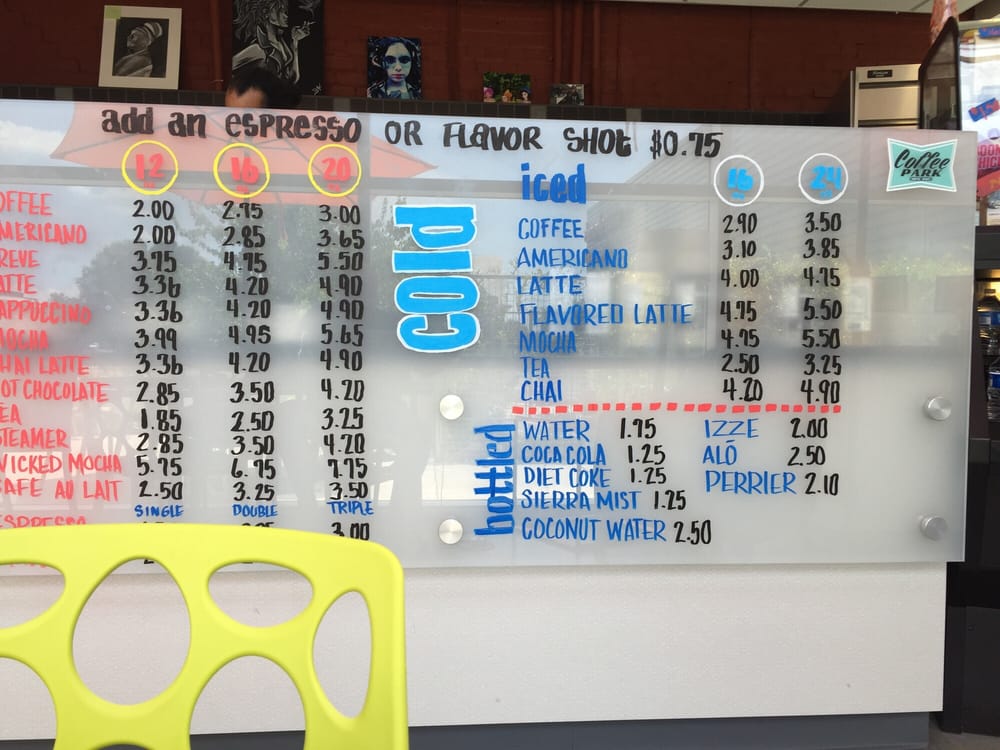 add an espresso OR FLAVOR SHOT $0.75
12 16 20
OFFEE 2.00 2.75 3.00
MERICANO 2.00 2.85 3.65
REVE 3.75 4.75 5.50
ATTE 3.36 4.20 4.90
APPUCCINO 3.36 4.20 4.90
MOCHA 3.99 4.95 5.65
HAI LATTE 3.36 4.20 4.90
OT CHOCOLATE 2.85 3.50 4.20
EA 1.85 2.50 3.25
STEAMER 2.85 3.50 4.20
WICKED MOCHA 5.75 6.75 7.75
CAFE AU LAIT 2.50 3.25 3.50
SINGLE DOUBLE TRIPLE
ESPRESSO 3.00
cold
iced 16 24
COFFEE 2.90 3.50
AMERICANO 3.10 3.85
LATTE 4.00 4.75
FLAVORED LATTE 4.75 5.50
MOCHA 4.75 5.50
TEA 2.50 3.25
CHAI 4.20 4.90
bottled
WATER 1.75
COCA COLA 1.25
DIET COKE 1.25
SIERRA MIST 1.25
COCONUT WATER 2.50
IZZE 2.00
ALŌ 2.50
PERRIER 2.10
Coffee
PARK